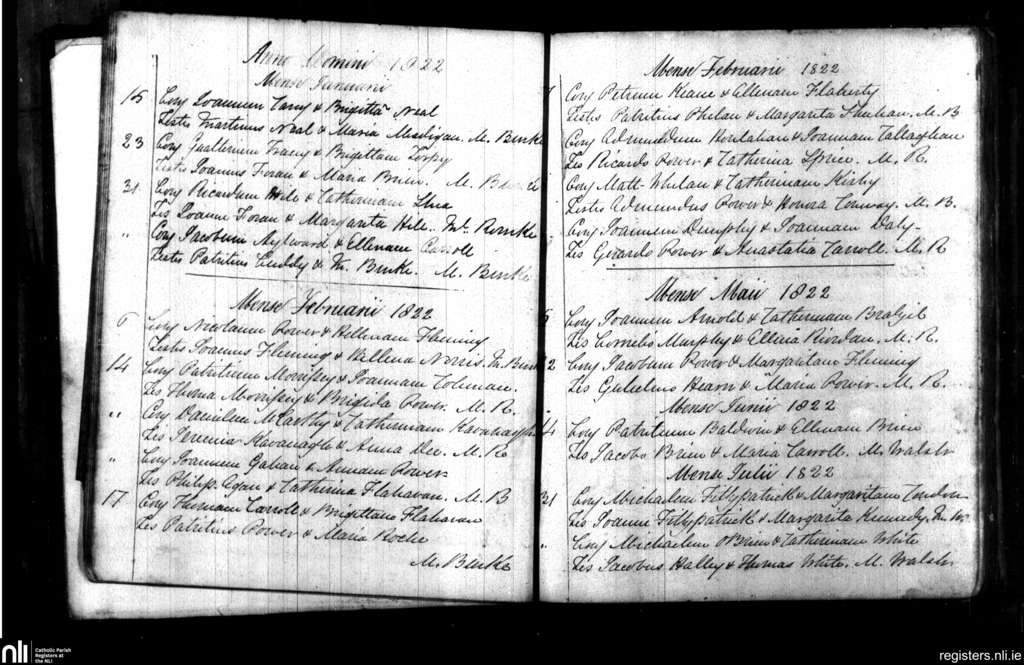 Anno Domini 1822
Mense Januarii
15 Conj Joannem Tarcy & Brigitta Neal
Testes Martinus Neal & Maria Madigan. M. Burke
23 Conj Gualterum Tracey & Brigittam Torpy
Testes Joannes Foran & Maria Brien. M. Burke
31 Conj Ricardum Hile & Catherinam Shea
Tes Joanne Foran & Margarita Hile. M. Rourke
" Conj Jacobum Aylward & Ellenam Carroll
Testes Patritius Cuddy & M. Burke. M. Burke
Mense Februarii 1822
6 Conj Nicolaum Power & Hellenam Fleming
Testes Joannes Fleming & Hellena Norris. M. Burke
14 Conj Patritium Morrissey & Joannam Coleman.
Tes Thoma Morrissey & Brigida Power. M. R.
" Conj Danielem McCarthy & Catherinam Kavanagh
Tes Jeremia Kavanagh & Anna Dee. M. R
" Conj Joannem Gahan & Annam Power
Tes Philip. Egan & Catherina Flahavan. M. B
17 Conj Thomam Carroll & Brigittam Flahavan
Tes Patritius Power & Maria Roche
M. Burke
Mense Februarii 1822
Conj Petrum Keane & Ellenam Flaherty
Testes Patritius Phelan & Margarita Sheehan. M. B
Conj Edmundum Houlahan & Joannam Callaghan
Tes Ricardo Power & Catherina Sprice. M. R.
Conj Matt. Whelan & Catherinam Kirby
Testes Edmundus Power & Honora Conway. M. B.
Conj Joannem Dunphy & Joannam Daly
Tes Gerardo Power & Anastatia Carroll. M. R
Mense Maii 1822
5 Conj Joannem Arnold & Catherinam Brazil
Tes Cornelio Murphy & Ellena Riordan. M. R.
12 Conj Jacobum Power & Margaritam Fleming
Tes Gulielmo Hearn & Maria Power. M. R.
Mense Junii 1822
Conj Patritium Baldwin & Ellenam Brien
Tes Jacobo Brien & Maria Carroll. M. Walsh
Mense Julii 1822
31 Conj Michaelem Fitzpatrick & Margaritam Condon
Tes Joanne Fitzpatrick & Margarita Kennedy.
" Conj Michaelem O'Brien & Catherinam White
Tes Jacobus Halley & Thomas White. M. Walsh
nli
Catholic Parish
Registers at
the NLI
registers.nli.ie